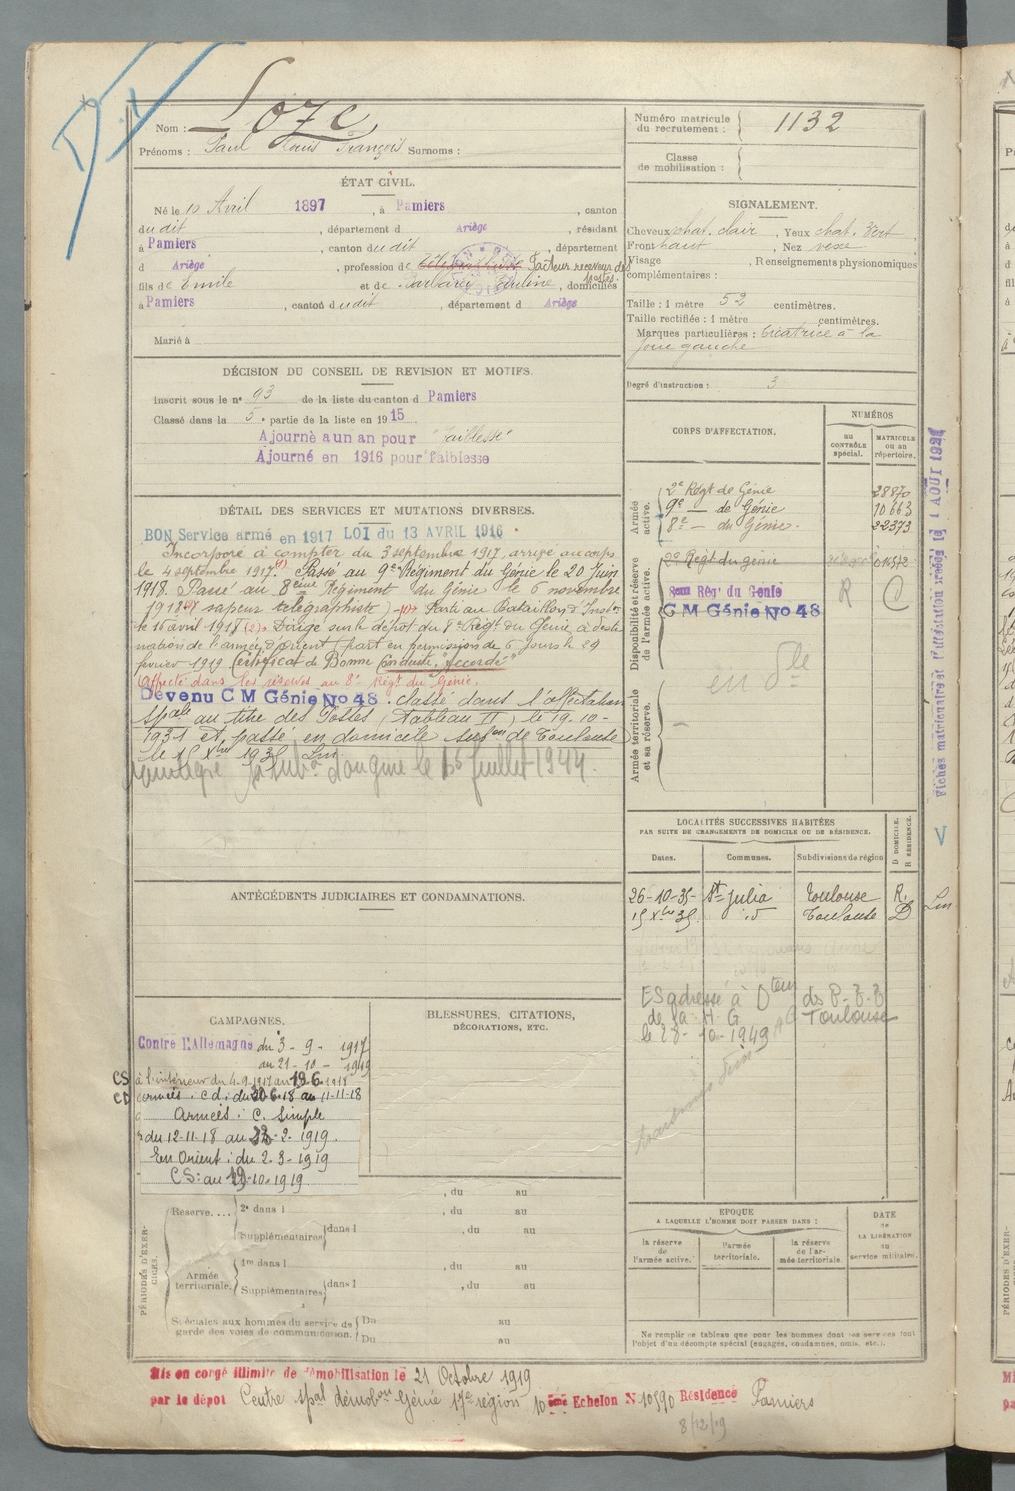 Nom : Loze
Prénoms : Paul Louis François Surnoms :
ÉTAT CIVIL.
Né le 10 Avril 1897, à Pamiers, canton
du dit, département d Ariège, résidant
à Pamiers, canton du dit, département
d Ariège, profession de Facteur receveur des
postes
fils de Emile et de Pauline, domiciliés
à Pamiers, canton du dit, département d Ariège
Marié à
DÉCISION DU CONSEIL DE REVISION ET MOTIFS.
Inscrit sous le n° 93 de la liste du canton d Pamiers
Classé dans la 5e partie de la liste en 1915
Ajourné à un an pour "faiblesse"
Ajourné en 1916 pour faiblesse
DÉTAIL DES SERVICES ET MUTATIONS DIVERSES.
BON Service armé en 1917 LOI du 13 AVRIL 1916.
Incorporé à compter du 3 septembre 1917, arrivé au corps
le 4 septembre 1917. Passé au 9e Régiment du Génie le 20 Juin
1918. Passé au 8ème Régiment du Génie le 6 novembre
1918 (sapeur télégraphiste) Parti au Bataillon d'
le 16 avril 1918 (2) Dirigé sur le dépôt du 8e Régt du Génie à desti
nation de l'armée d'orient (part en permission de 6 jours le 29
février 1919 Certificat de Bonne Conduite "Accordé"
Affecté dans les réserves au 8e Régt du Génie.
Devenu C M Génie No 48. classé dans l'affectation
spale au titre des Postes (Tableau II) le 19-10-
1931 et passé en domicile subon de Toulouse
le 15 Xbre 1935
le 15 Juillet 1944.
ANTÉCÉDENTS JUDICIAIRES ET CONDAMNATIONS.
CAMPAGNES.
Contre l'Allemagne du 3-9-1917
au 21-10-1919
CS à l'intérieur du 4-9-1917 au 19.6.1918
CD armées. c d: du 20-6-18 au 11-11-18
Armées: C. Simple
du 12-11-18 au 22-2-1919.
En Orient: du 2-3-1919
CS: au 19-10-1919
BLESSURES, CITATIONS,
DÉCORATIONS, ETC.
PÉRIODES D'EXERCICES.
Réserve....
, du au
2e dans l , du au
Supplémentaires dans l , du au
Armée
territoriale.
1re dans l , du au
Supplémentaires dans l , du au
Spéciales aux hommes du service de
garde des voies de communication.
Du au
Du au
Mis en congé illimité de démobilisation le 21 Octobre 1919
par le dépôt Centre spal démobon Génie 17e région 10ème Echelon N 10590 Résidence Pamiers
8/12/19
Numéro matricule
du recrutement : 1132
Classe
de mobilisation :
SIGNALEMENT.
Cheveux chat. clair, Yeux chat. vert,
Front haut, Nez vexe
Visage , Renseignements physionomiques
complémentaires :
Taille : 1 mètre 52 centimètres.
Taille rectifiée : 1 mètre centimètres.
Marques particulières : Cicatrice à la
joue gauche
Degré d'instruction : 3
CORPS D'AFFECTATION.
NUMÉROS
AU
CONTRÔLE
spécial.
MATRICULE
OU AU
répertoire.
Armée
active.
2e Régt de Génie 28870
9e — de Génie 10663
8e — du Génie. 22373
Disponibilité et réserve
de l'armée active.
2e Régt du génie
8eme Rég' du Génie R C
C M Génie No 48
Armée territoriale
et sa réserve.
LOCALITÉS SUCCESSIVES HABITÉES
PAR SUITE DE CHANGEMENTS DE DOMICILE OU DE RÉSIDENCE.
Dates. Communes. Subdivisions de région
D DOMICILE.
R RÉSIDENCE.
26-10-35- St Julia Toulouse R.
15 Xbre 35. id Toulouse D
ES adressé à Dteur des P.T.T
de la H G Toulouse
le 28-10-1949
EPOQUE
A LAQUELLE L'HOMME DOIT PASSER DANS :
la réserve
de
l'armée active.
l'armée
territoriale.
la réserve
de l'ar-
mée territoriale.
DATE
de
LA LIBÉRATION
du
service militaire.
Ne remplir ce tableau que pour les hommes dont les services font
l'objet d'un décompte spécial (engagés, condamnés, omis, etc.).
V